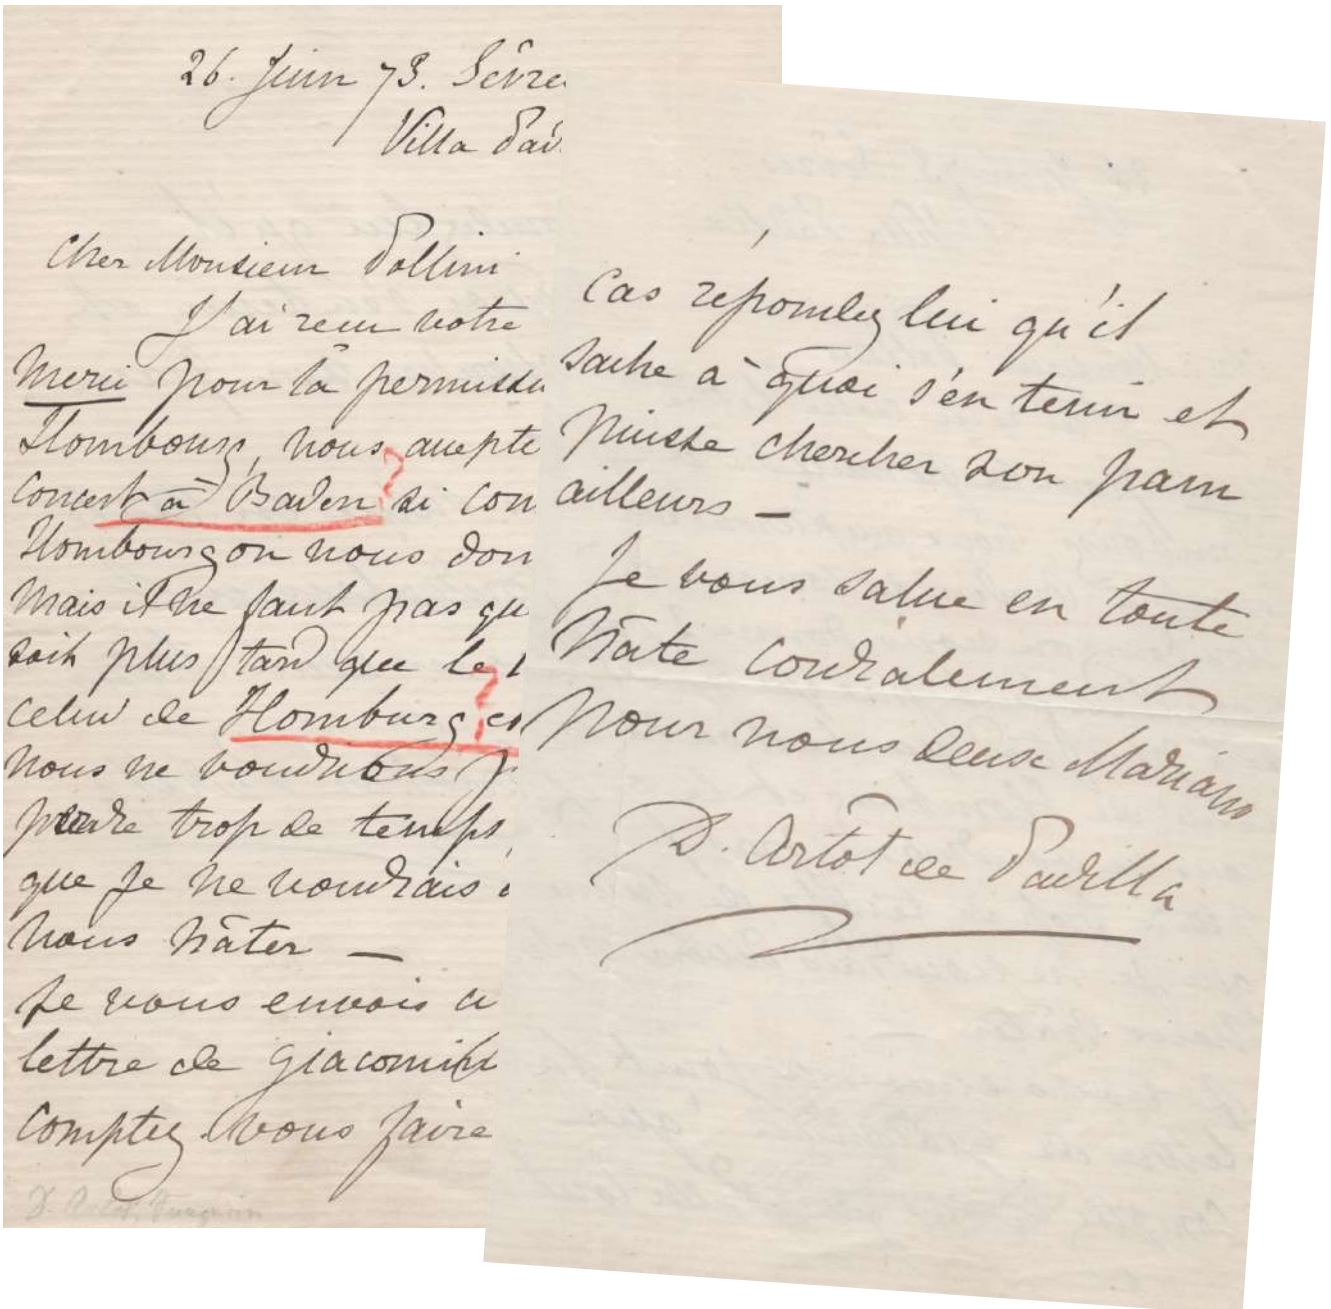 26. Juin 73. Sèvre
Villa Pad
Cher Monsieur Pollini
J'ai recu votre
Merci pour la permissi
Hombourg, nous accepte
concert à Baden ? si con
Hombourg on nous don
Mais il ne faut pas qu
soit plus tard que le 1
celui de Homburg ? es
nous ne voudrions p
perdre trop de temps,
que je ne voudrais
nous hâter —
Je vous envois ci
lettre de Giacomi
comptez vous faire
D. Artot,
cas répondez lui qu'il
sache à quoi s'en tenir et
puisse chercher son pain
ailleurs —
Je vous salue en toute
hâte cordialement
pour nous deux Mariano
D. Artôt de Padilla